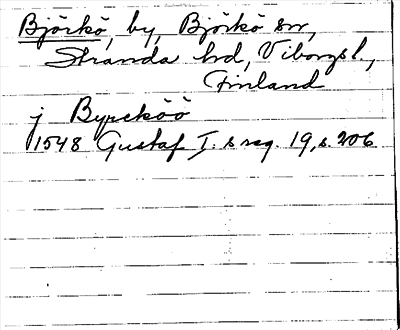 Björkö, by, Björkö sn,
Stranda hd, Viborgs l.,
Finland
j Byrcköö
1548 Gustaf I:s reg. 19, s. 206